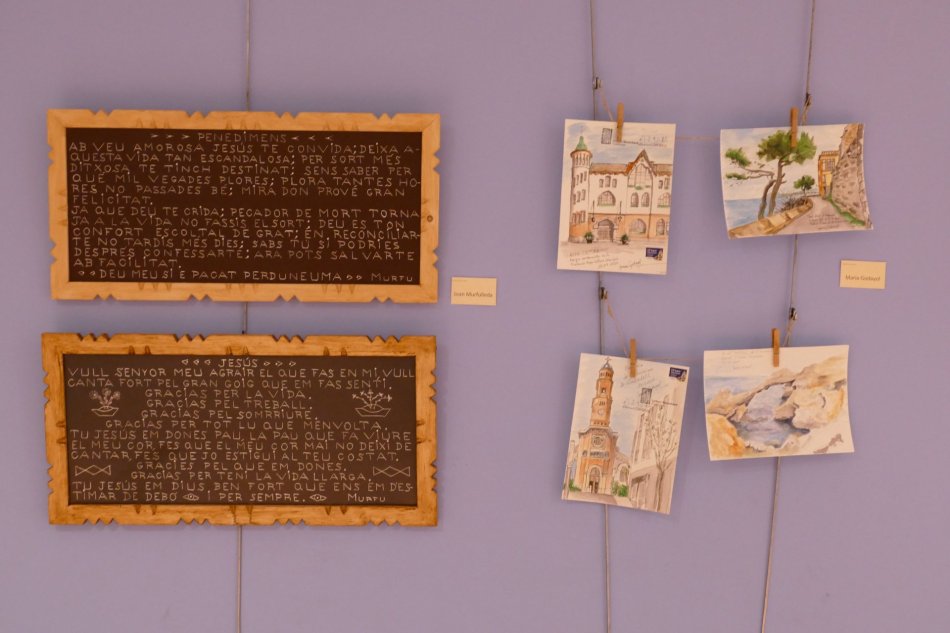 PENEDIMENS
AB VEU AMOROSA JESÚS TE CONVIDA; DEIXA A-
QUESTA VIDA TAN ESCANDALOSA; PER SORT MÉS
DITXOSA TE TINCH DESTINAT; SENS SABER PER
QUÈ MIL VEGADES PLORES; PLORA TANTES HO-
RES NO PASSADES BÉ; MIRA DON PROVÉ GRAN
FELICITAT.
JA QUE DEU TE CRIDA; PECADOR DE MORT TORNA
JA A LA VIDA NO FASSIE ELSORTE; DEU ES TON
CONFORT ESCOLTAL DE GRAT; EN RECONCILIAR-
TE NO TARDIS MÉS DIES; SABS TU SI PODRIES
DESPRES CONFESSARTE; ARA POTS SALVARTE
AB FACILITAT.
DEU MEU SI E PACAT PERDUNEUMA MURFU
Joan Murfulleda
JESÚS
VULL SENYOR MEU AGRAIR EL QUE FAS EN MI, VULL
CANTA FORT PEL GRAN GOIG QUE EM FAS SENTI.
GRACIAS PER LA VIDA.
GRACIAS PEL TREBALL.
GRACIAS PEL SOMRRIURE.
GRACIAS PER TOT LU QUE MENVOLTA.
TU JESÚS EM DONES PAU, LA PAU QUE FA VIURE
EL MEU COR FES QUE EL MEU COR MAI NO DEIXI DE
CANTAR, FES QUE JO ESTIGUI AL TEU COSTAT.
GRACIES PEL QUE EM DONES.
GRACIAS PER TENI LA VIDA LLARGA.
TU JESÚS EM DIUS, BEN FORT QUE ENS EM D'ES-
TIMAR DE DEBÓ I PER SEMPRE. MURFU
Maria Godayol